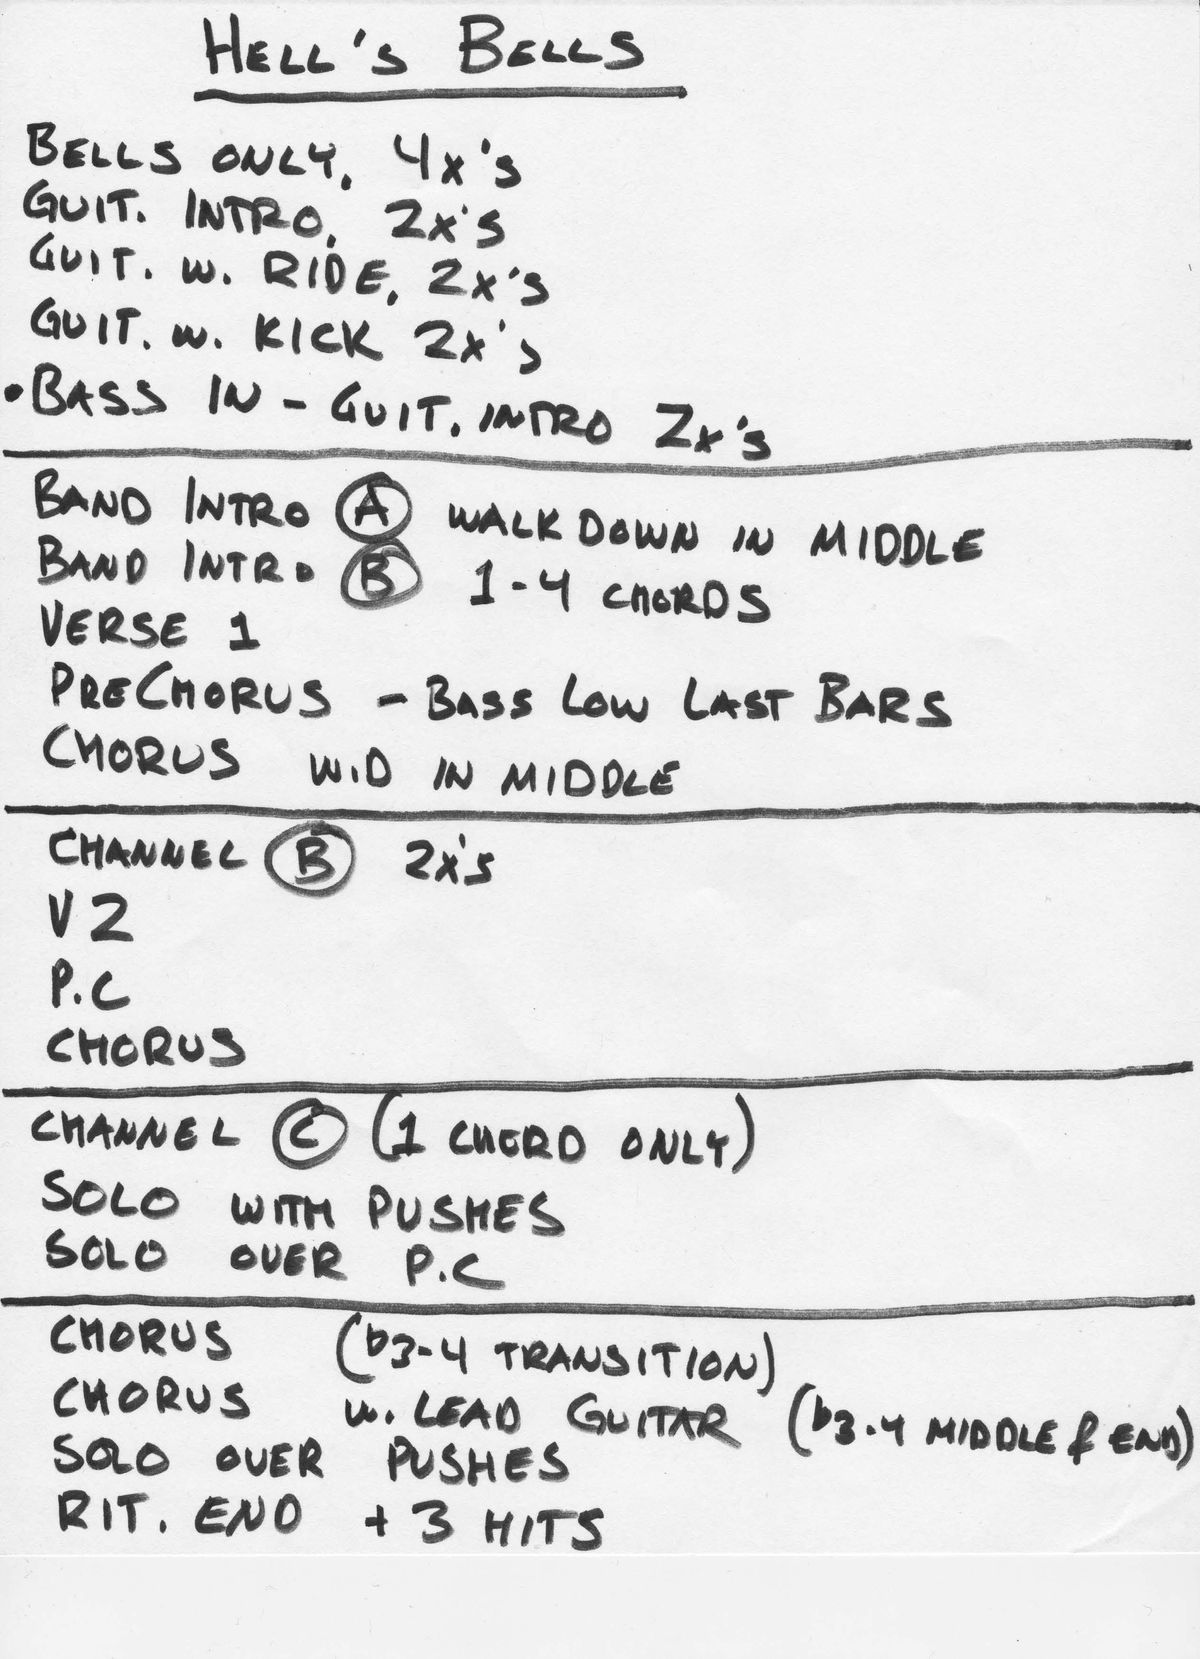 HELL's BELLS
BELLS ONLY, 4x's
GUIT. INTRO, 2x's
GUIT. w. RIDE, 2x's
GUIT. w. KICK 2x's
• BASS IN - GUIT. INTRO 2x's
BAND INTRO A WALK DOWN IN MIDDLE
BAND INTRO B 1-4 CHORDS
VERSE 1
PRECHORUS - BASS LOW LAST BARS
CHORUS W.D IN MIDDLE
CHANNEL B 2x's
V 2
P.C
CHORUS
CHANNEL C (1 CHORD ONLY)
SOLO WITH PUSHES
SOLO OVER P.C
CHORUS (b3-4 TRANSITION)
CHORUS w. LEAD GUITAR (b3-4 MIDDLE & END)
SOLO OVER PUSHES
RIT. END + 3 HITS